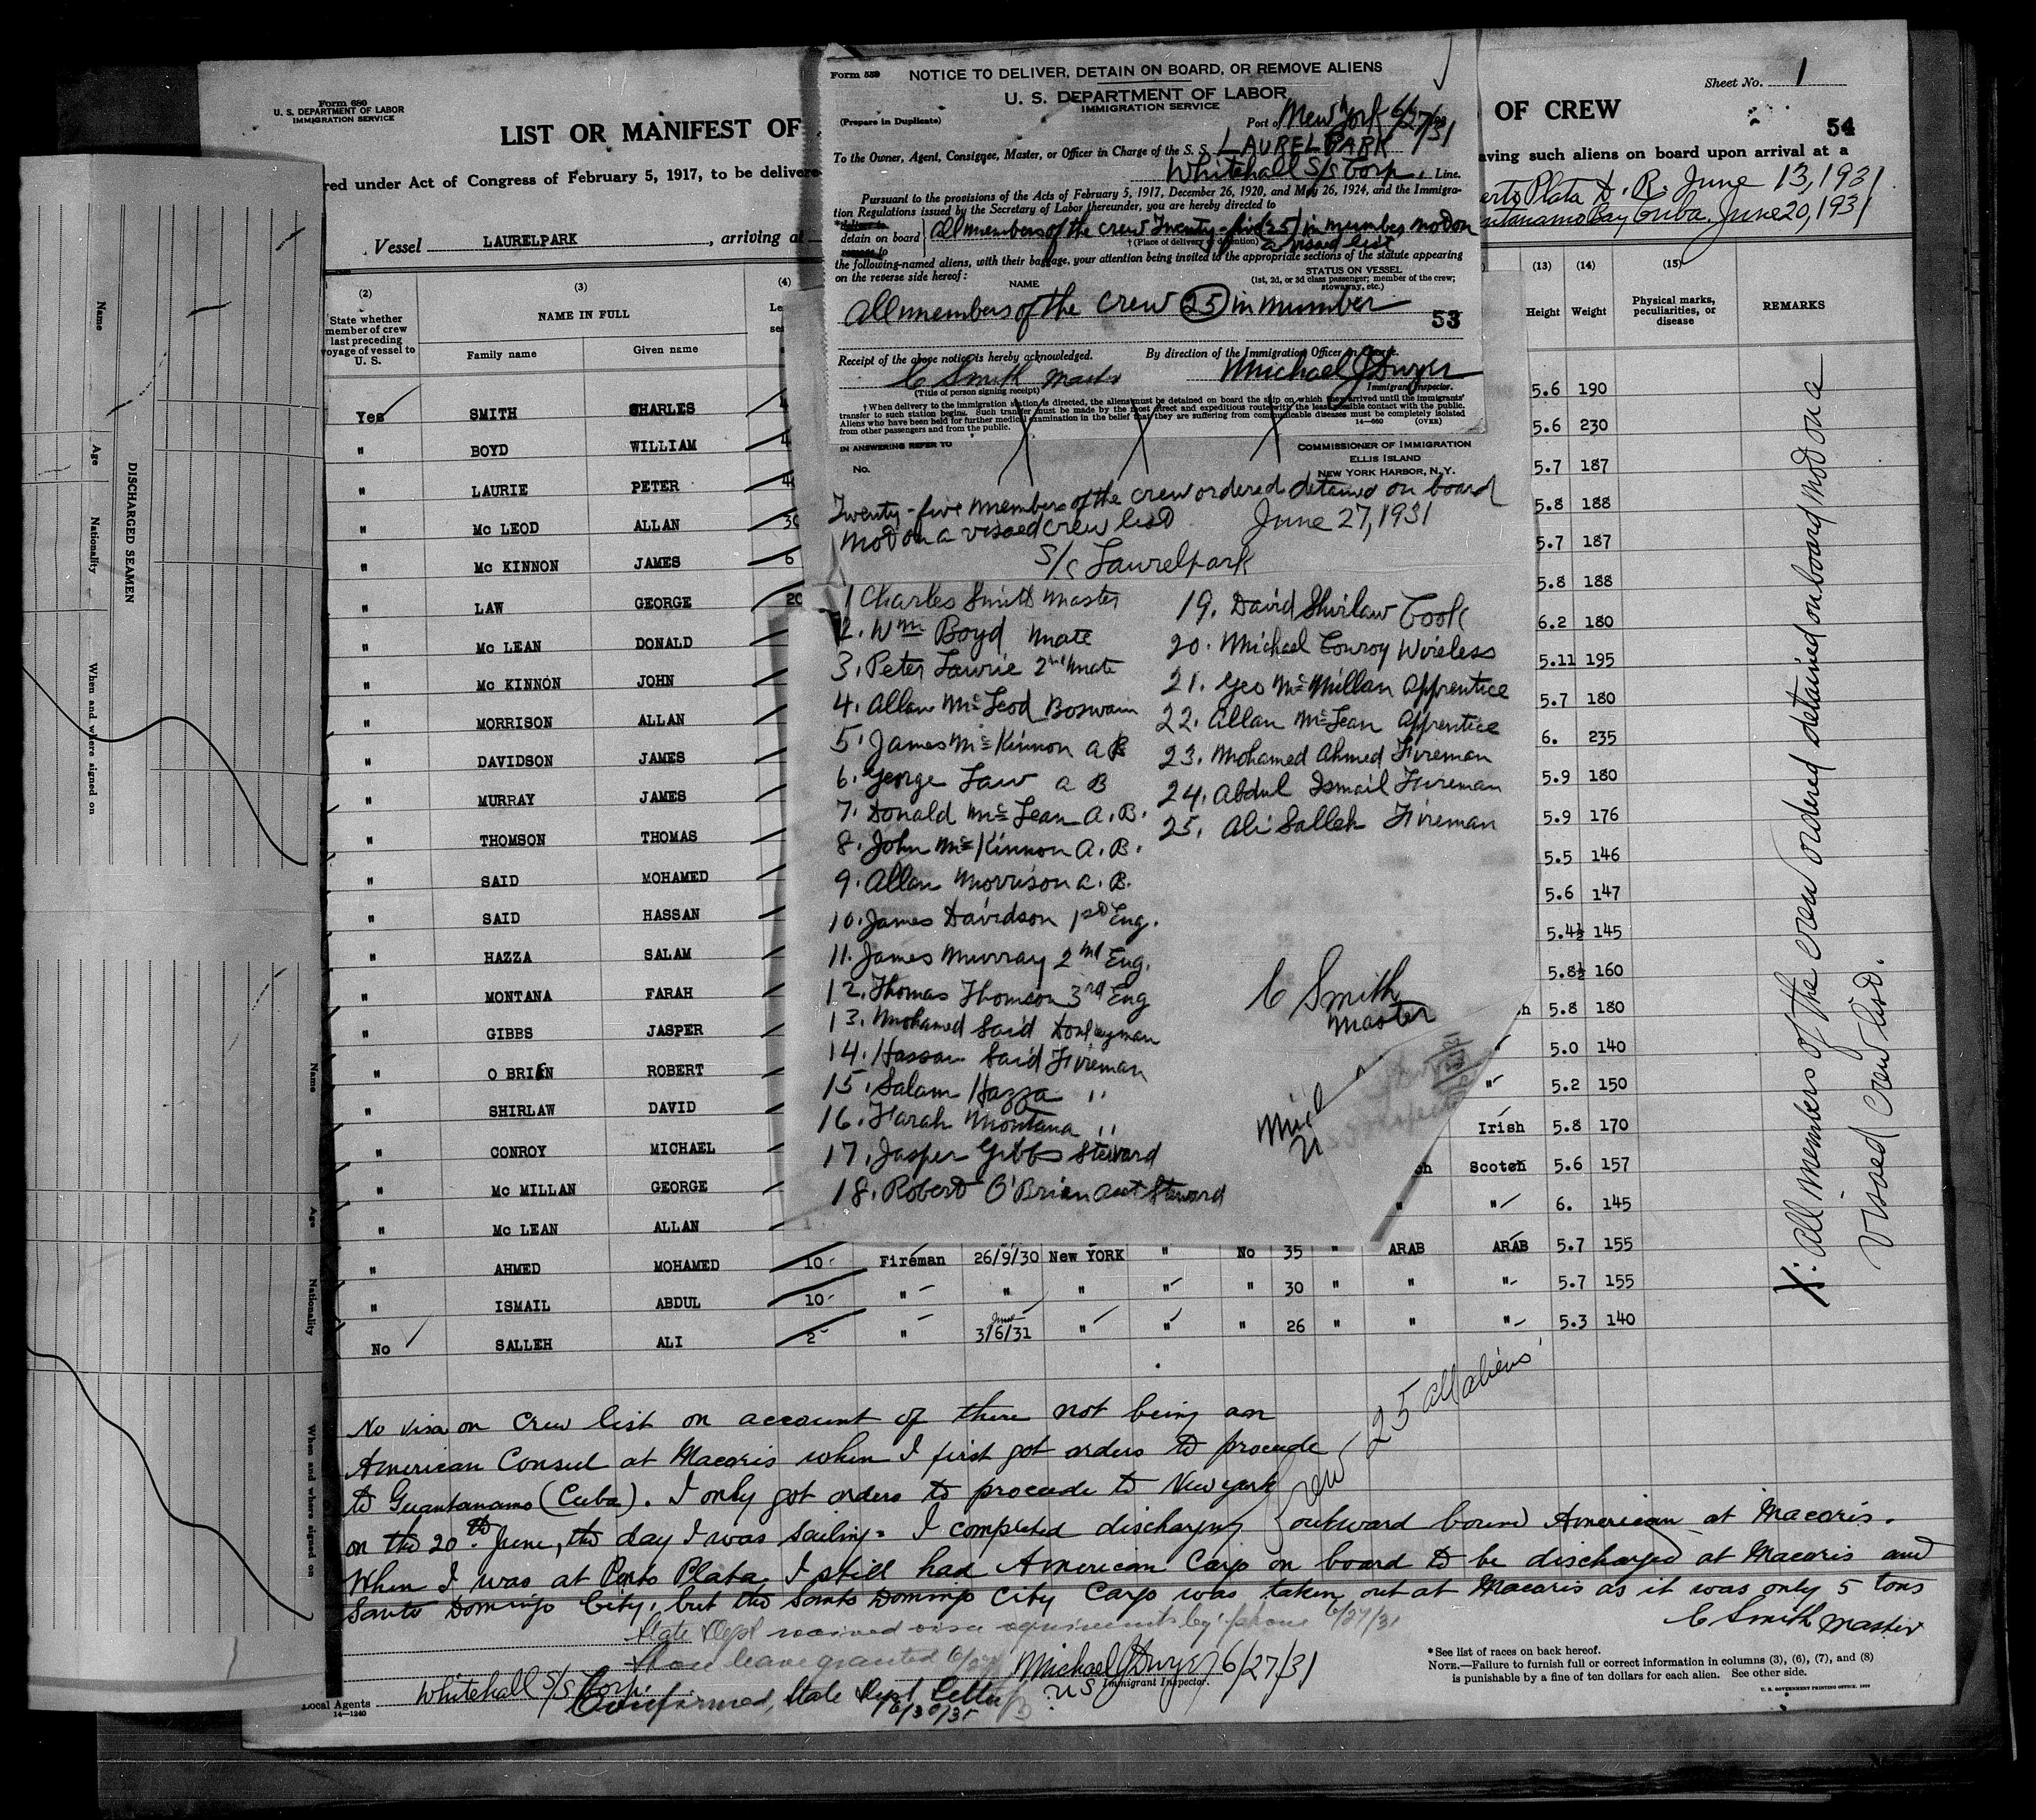 Form 680
U. S. DEPARTMENT OF LABOR
IMMIGRATION SERVICE
LIST OR MANIFEST OF
OF CREW
Sheet No. 1
54
red under Act of Congress of February 5, 1917, to be delivere
aving such aliens on board upon arrival at a
erto Plata D. R. June 13, 1931
ntanamo Bay Cuba. June 20, 1931
Vessel LAURELPARK, arriving at
Form 559
NOTICE TO DELIVER, DETAIN ON BOARD, OR REMOVE ALIENS
U. S. DEPARTMENT OF LABOR
IMMIGRATION SERVICE
(Prepare in Duplicate)
Port of New York 6/27/31
To the Owner, Agent, Consignee, Master, or Officer in Charge of the S. S. LAURELPARK
Whitehall S/S Corp. Line.
Pursuant to the provisions of the Acts of February 5, 1917, December 26, 1920, and May 26, 1924, and the Immigra-
tion Regulations issued by the Secretary of Labor thereunder, you are hereby directed to
*deliver to
detain on board
remove to
all members of the crew Twenty-five (25) in number not on
a visaed list
†(Place of delivery or detention)
the following-named aliens, with their baggage, your attention being invited to the appropriate sections of the statute appearing
on the reverse side hereof:
STATUS ON VESSEL
NAME
(1st, 2d, or 3d class passenger; member of the crew;
stowaway, etc.)
all members of the crew 25 in number
53
Receipt of the above notice is hereby acknowledged.
By direction of the Immigration Officer in Charge.
C Smith Master
Michael J Dwyer
(Title of person signing receipt)
Immigrant Inspector.
† When delivery to the immigration station is directed, the aliens must be detained on board the ship on which they arrived until the immigrants'
transfer to such station begins. Such transfer must be made by the most direct and expeditious route with the least possible contact with the public.
Aliens who have been held for further medical examination in the belief that they are suffering from communicable diseases must be completely isolated
from other passengers and from the public.
14—660
(OVER)
IN ANSWERING REFER TO
No.
COMMISSIONER OF IMMIGRATION
ELLIS ISLAND
NEW YORK HARBOR, N. Y.
Twenty-five members of the crew ordered detained on board
not on a visaed crew list June 27, 1931
S/S Laurelpark
1 Charles Smith Master
2. Wm Boyd Mate
3. Peter Lawrie 2nd Mate
4. Allan McLeod Boswain
5. James McKinnon A B
6. George Law A B
7. Donald McLean A. B.
8. John McKinnon A. B.
9. Allan Morrison A. B.
10. James Davidson 1st Eng.
11. James Murray 2nd Eng.
12. Thomas Thomson 3rd Eng
13. Mohamed Said Donkeyman
14. Hassan Said Fireman
15. Salam Hazza "
16. Farah Montana "
17. Jasper Gibbs Steward
18. Robert O'Brien Asst Steward
19. David Shirlaw Cook
20. Michael Conroy Wireless
21. Geo McMillan Apprentice
22. Allan McLean Apprentice
23. Mohamed Ahmed Fireman
24. Abdul Ismail Fireman
25. Ali Salleh Fireman
C Smith
Master
(2)
State whether
member of crew
last preceding
voyage of vessel to
U. S.
(3)
NAME IN FULL
Family name
Given name
(4)
(13)
Height
(14)
Weight
(15)
Physical marks,
peculiarities, or
disease
REMARKS
Yes SMITH CHARLES 5.6 190
" BOYD WILLIAM 5.6 230
" LAURIE PETER 5.7 187
" Mc LEOD ALLAN 5.8 188
" Mc KINNON JAMES 6 5.7 187
" LAW GEORGE 20 5.8 188
" Mc LEAN DONALD 6.2 180
" Mc KINNON JOHN 5.11 195
" MORRISON ALLAN 5.7 180
" DAVIDSON JAMES 6. 235
" MURRAY JAMES 5.9 180
" THOMSON THOMAS 5.9 176
" SAID MOHAMED 5.5 146
" SAID HASSAN 5.6 147
" HAZZA SALAM 5.4½ 145
" MONTANA FARAH 5.8½ 160
" GIBBS JASPER h 5.8 180
" O BRIEN ROBERT " 5.0 140
" SHIRLAW DAVID " 5.2 150
" CONROY MICHAEL Irish 5.8 170
" Mc MILLAN GEORGE ch Scotch 5.6 157
" Mc LEAN ALLAN " " 6. 145
" AHMED MOHAMED 10 Fireman 26/9/30 New YORK " No 35 " ARAB ARAB 5.7 155
" ISMAIL ABDUL 10 " " " " " 30 " " " 5.7 155
No SALLEH ALI 2 " 3/6/31 June " " " 26 " " " 5.3 140
X: All members of the crew ordered detained on board not on a
visaed crew list.
25 all aliens
Crew
No visa on crew list on account of there not being an
American Consul at Macoris when I first got orders to proceede
to Guantanamo (Cuba). I only got orders to proceede to New york
on the 20th June, the day I was sailing. I completed discharging outward bound American at Macoris.
When I was at Porto Plata I still had American Cargo on board to be discharged at Macoris and
Santo Domingo City, but the Santo Domingo City Cargo was taken out at Macoris as it was only 5 tons
C Smith Master
State Dept waived visa requirements by phone 6/27/31
Shore leave granted 6/27
Michael J Dwyer 6/27/31
U S Immigrant Inspector.
Local Agents Whitehall S/S Corp.
14—1240
Confirmed, State Dept Letter
6/30/31
* See list of races on back hereof.
NOTE.—Failure to furnish full or correct information in columns (3), (6), (7), and (8)
is punishable by a fine of ten dollars for each alien. See other side.
U. S. GOVERNMENT PRINTING OFFICE
DISCHARGED SEAMEN
Name
Age
Nationality
When and where signed on
Name
Age
Nationality
When and where signed on